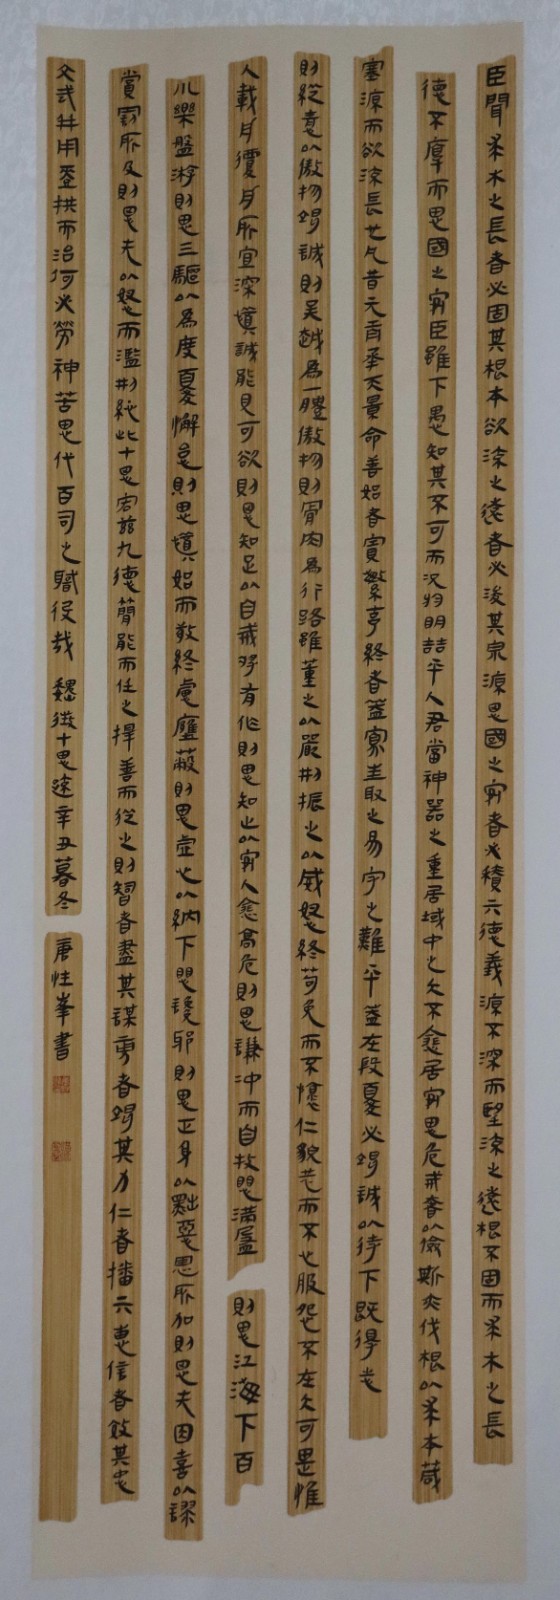 臣聞求木之長者必固其根本欲流之遠者必浚其泉源思國之安者必積其德義源不深而望流之遠根不固而求木之長
德不厚而思國之安臣雖下愚知其不可而況於明喆乎人君當神器之重居域中之大不念居安思危戒奢以儉斯亦伐根以求木茂
塞源而欲流長也凡昔元首承天景命善始者實繁克終者蓋寡豈取之易守之難乎蓋在殷憂必竭誠以待下既得志
則縱意以傲物竭誠則吳越為一體傲物則骨肉為行路雖董之以嚴刑振之以威怒終苟免而不懷仁貌恭而不心服怨不在大可畏惟
人載舟覆舟所宜深慎誠能見可欲則思知足以自戒將有作則思知止以安人念高危則思謙沖而自牧懼滿盈則思江海下百
川樂盤游則思三驅以為度憂懈怠則思慎始而敬終慮壅蔽則思虛心以納下懼讒邪則思正身以黜惡恩所加則思無因喜以謬
賞罰所及則思無以怒而濫刑總此十思宏茲九德簡能而任之擇善而從之則智者盡其謀勇者竭其力仁者播其惠信者效其忠
文武并用垂拱而治何必勞神苦思代百司之職役哉 魏徵十思疏辛丑暮冬 唐性峯書